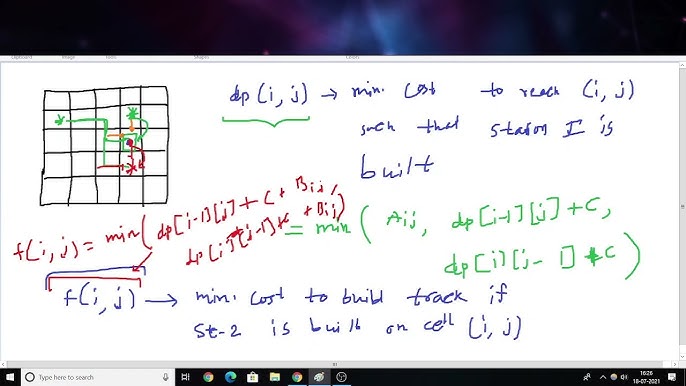 Clipboard Image Tools Shapes Colors
dp(i,j) → min. cost to reach (i,j)
such that station I is
built
f(i,j) = min(dp[i-1][j] + C + Bij,
dp[i][j-1] + C + Bij)
= min(Aij, dp[i-1][j] + C,
dp[i][j-1] + C)
f(i,j) → min. cost to build track if
St-2 is built on cell (i,j)
Type here to search
16:26
18-07-2021